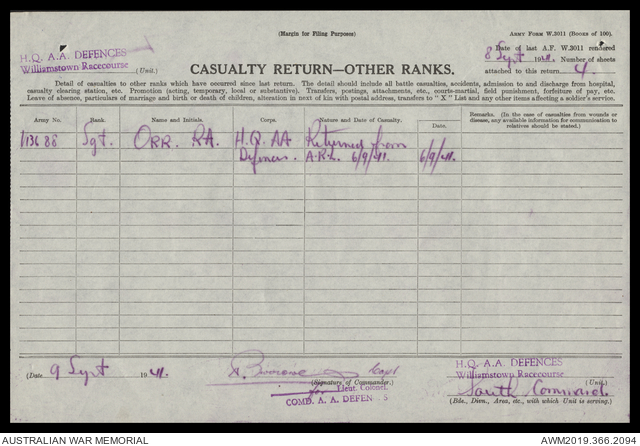 (Margin for Filing Purposes)
ARMY FORM W.3011 (BOOKS OF 100).
H.Q. A.A. DEFENCES
Williamstown Racecourse (Unit.)
CASUALTY RETURN—OTHER RANKS.
Date of last A.F. W.3011 rendered
8 Sept 1941. Number of sheets
attached to this return 4
Detail of casualties to other ranks which have occurred since last return. The detail should include all battle casualties, accidents, admission to and discharge from hospital,
casualty clearing station, etc. Promotion (acting, temporary, local or substantive). Transfers, postings, attachments, etc., courts-martial, field punishment, forfeiture of pay, etc.
Leave of absence, particulars of marriage and birth or death of children, alteration in next of kin with postal address, transfers to "X" List and any other items affecting a soldier's service.
Army No. Rank. Name and Initials. Corps. Nature and Date of Casualty. Date. Remarks. (In the case of casualties from wounds or
disease, any available information for communication to
relatives should be stated.)
V13688 Sgt. ORR. RA. H.Q. AA Returned from
Defences. A.R.L. 6/9/41. 6/9/41.
(Date 9 Sept 1941.
Capt
(Signature of Commander.)
for Lieut. Colonel.
COMD. A. A. DEFEN S
H.Q. A.A. DEFENCES
Williamstown Racecourse
(Unit.)
South Command.
(Bde., Divn., Area, etc., with which Unit is serving.)
AUSTRALIAN WAR MEMORIAL
AWM2019.366.2094